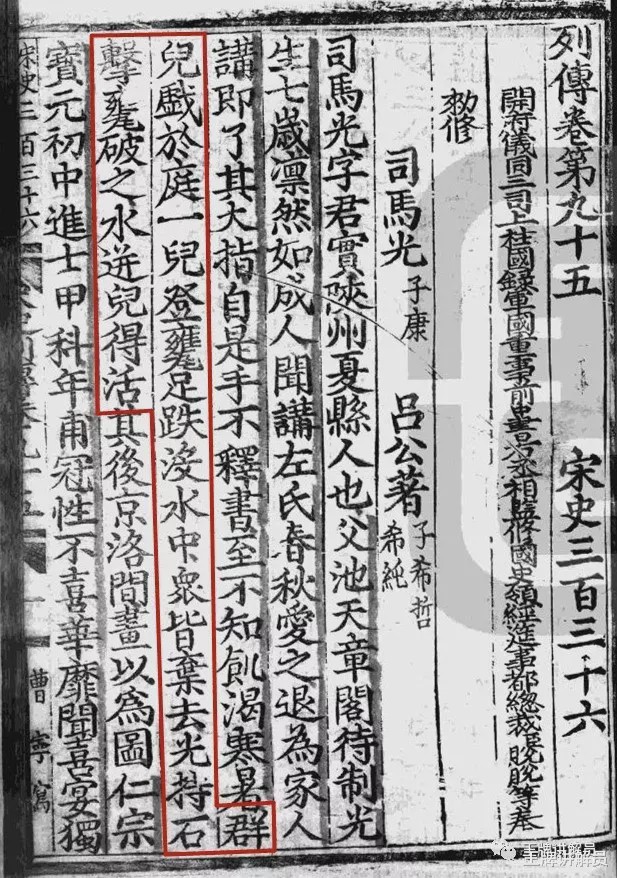 列傳卷第九十五 宋史三百三十六
開府儀同三司上柱國録軍國重事前中書右丞相監修國史領經筵事都總裁脫脫等奉
勑修
司馬光 子康 呂公著 子希哲 希純
司馬光字君實陝州夏縣人也父池天章閣待制光
生七歲凛然如成人聞講左氏春秋愛之退為家人
講即了其大指自是手不釋書至不知飢渴寒暑群
兒戲於庭一兒登甕足跌没水中眾皆棄去光持石
擊甕破之水迸兒得活其後京洛間畫以為圖仁宗
寶元初中進士甲科年甫冠性不喜華靡聞喜宴獨
宋史三百三十六 曹寧寫
王牌讲解员